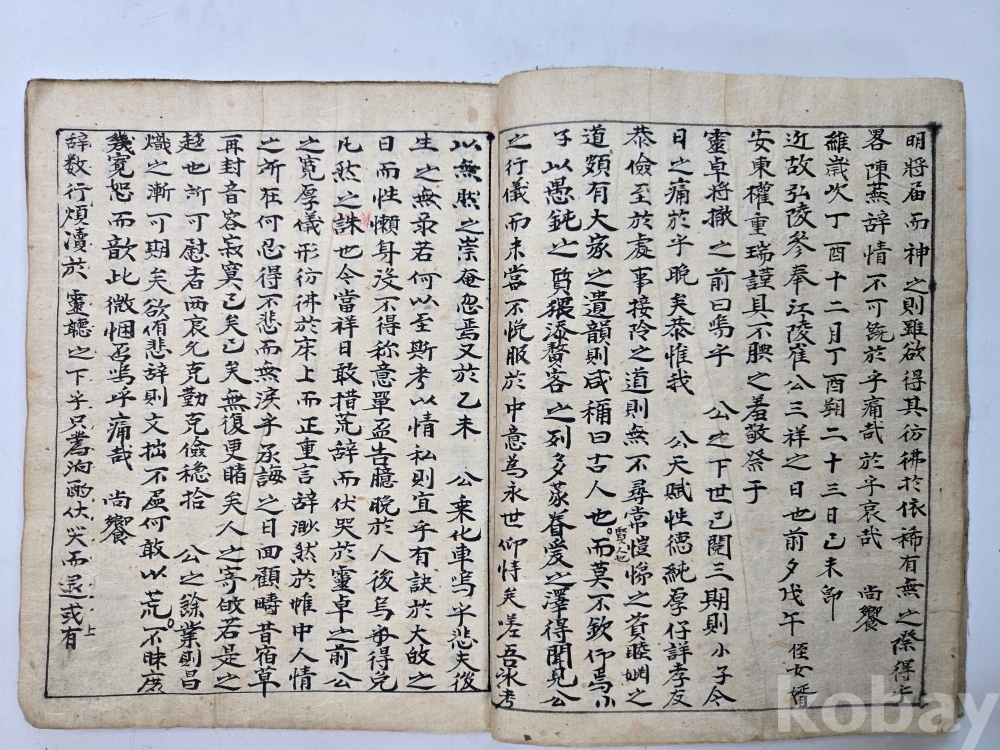 明將届而神之則雖欲得其彷彿於依稀有無之際得乎
畧陳蕪辞情不可旣於乎痛哉於乎哀哉 尚饗
維歲次丁酉十二月丁酉朔二十三日己未卽
近故弘陵參奉江陵崔公三祥之日也前夕戊午 侄女婿
安東權重瑞謹具不腆之羞敬祭于
靈卓將撤之前曰嗚乎 公之下世已閱三期則小子今
日之痛於乎晚矣恭惟我 公天賦性德純厚仔詳孝友
恭儉至於處事接怜之道則無不尋常愷悌之資睦婣之
道頗有大家之遺韻則咸稱曰古人也而莫不欽仰焉小
賢人也
子以愚鈍之質猥添贅客之列多蒙眷愛之澤得聞見公
之行儀而未嘗不悅服於中意為永世仰恃矣嗟吾冰考
以無眤之祟奄忽焉又於乙未 公乘化車嗚乎悲夫後
生之無彔若何以至斯考以情私則宜乎有訣於大故之
日而性懶身沒不得称意單盃告臆晚於人後烏乎得免
凡然之誅也今當祥日敢措荒辞而伏哭於靈卓之前公
之寬厚儀形彷彿於床上而正重言辞渺然於帷中人情
之所在何忍得不悲而無淚乎承誨之日回顧疇昔宿草
再封音容寂寞已矣已矣無復更睹矣人之寄故若是之
趍也所可慰者兩哀允克勤克儉穩拾 公之餘業則昌
熾之漸可期矣欲侑悲辞則文拙不盈何敢以荒不昧庶
幾寬恕而歆此微悃否嗚呼痛哉 尚饗
辞数行煩瀆於 靈聽之下乎只為洵酌伏哭而退或有
上
kobay